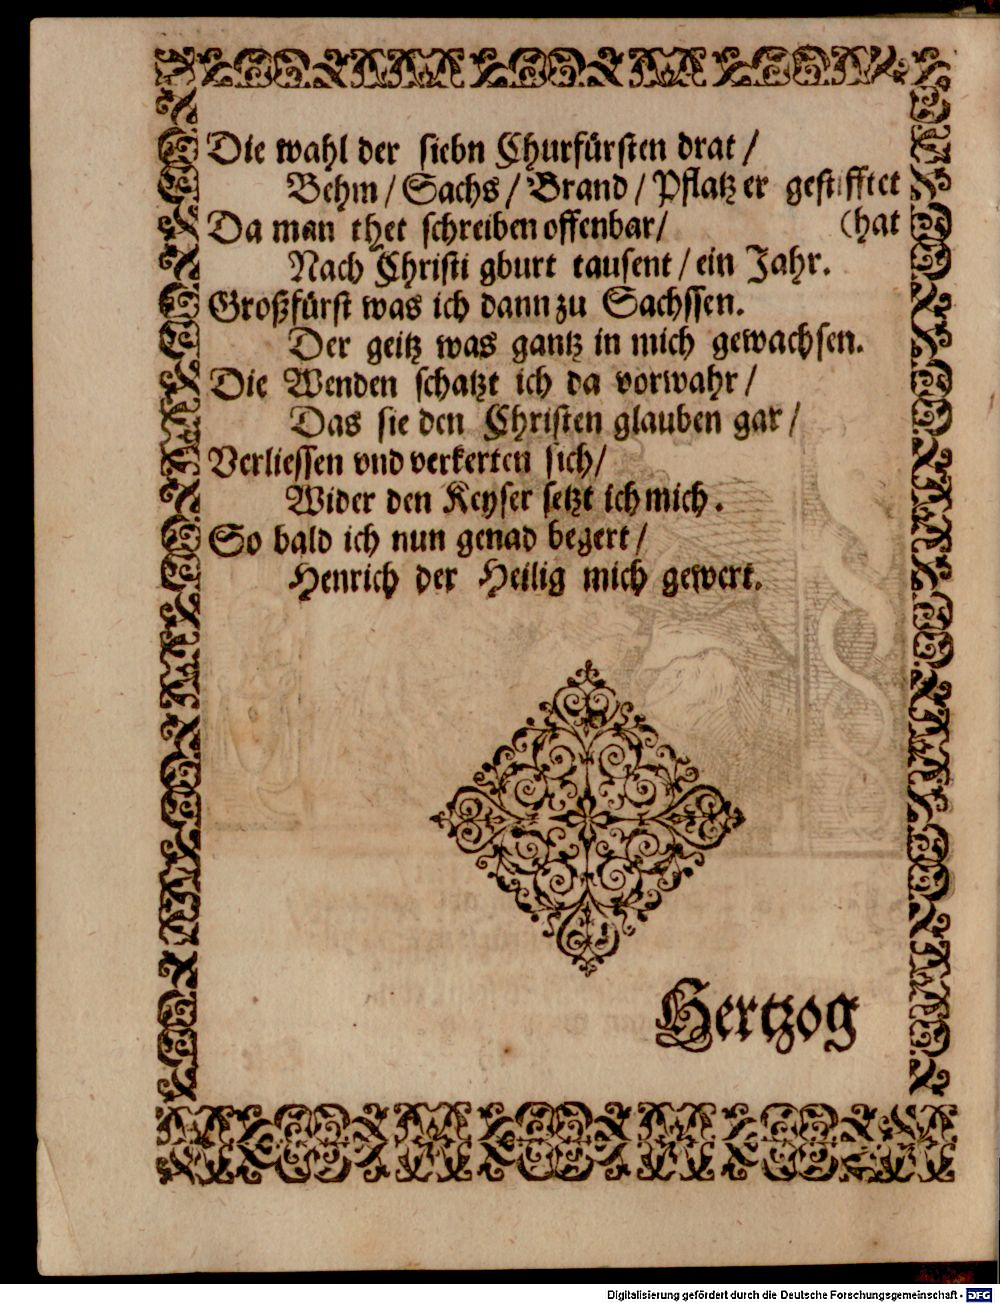 Die wahl der siebn Churfürsten drat /
Behm / Sachs / Brand / Pflatz er gestifftet
Da man thet schreiben offenbar / (hat
Nach Christi gburt tausent / ein Jahr.
Großfürst was ich dann zu Sachssen.
Der geitz was gantz in mich gewachsen.
Die Wenden schatzt ich da vorwahr /
Das sie den Christen glauben gar /
Verliessen vnd verkerten sich /
Wider den Keyser setzt ich mich.
So bald ich nun genad begert /
Henrich der Heilig mich gewert.
Hertzog
Digitalisierung gefördert durch die Deutsche Forschungsgemeinschaft - DFG